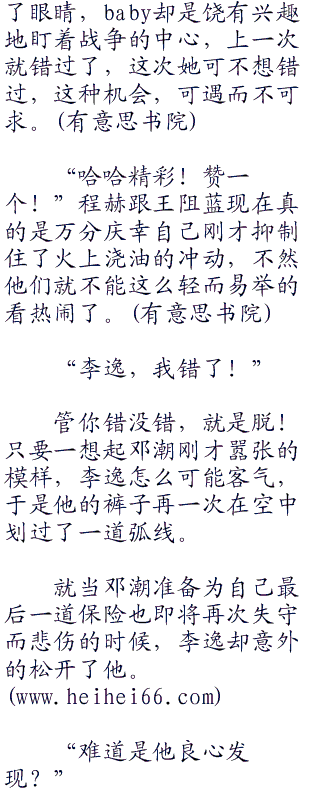 了眼睛，baby却是饶有兴趣
地盯着战争的中心，上一次
就错过了，这次她可不想错
过，这种机会，可遇而不可
求。(有意思书院)
“哈哈精彩！赞一
个！”程赫跟王阻蓝现在真
的是万分庆幸自己刚才抑制
住了火上浇油的冲动，不然
他们就不能这么轻而易举的
看热闹了。(有意思书院)
“李逸，我错了！”
管你错没错，就是脱！
只要一想起邓潮刚才嚣张的
模样，李逸怎么可能客气，
于是他的裤子再一次在空中
划过了一道弧线。
就当邓潮准备为自己最
后一道保险也即将再次失守
而悲伤的时候，李逸却意外
的松开了他。
(www.heihei66.com)
“难道是他良心发
现？”